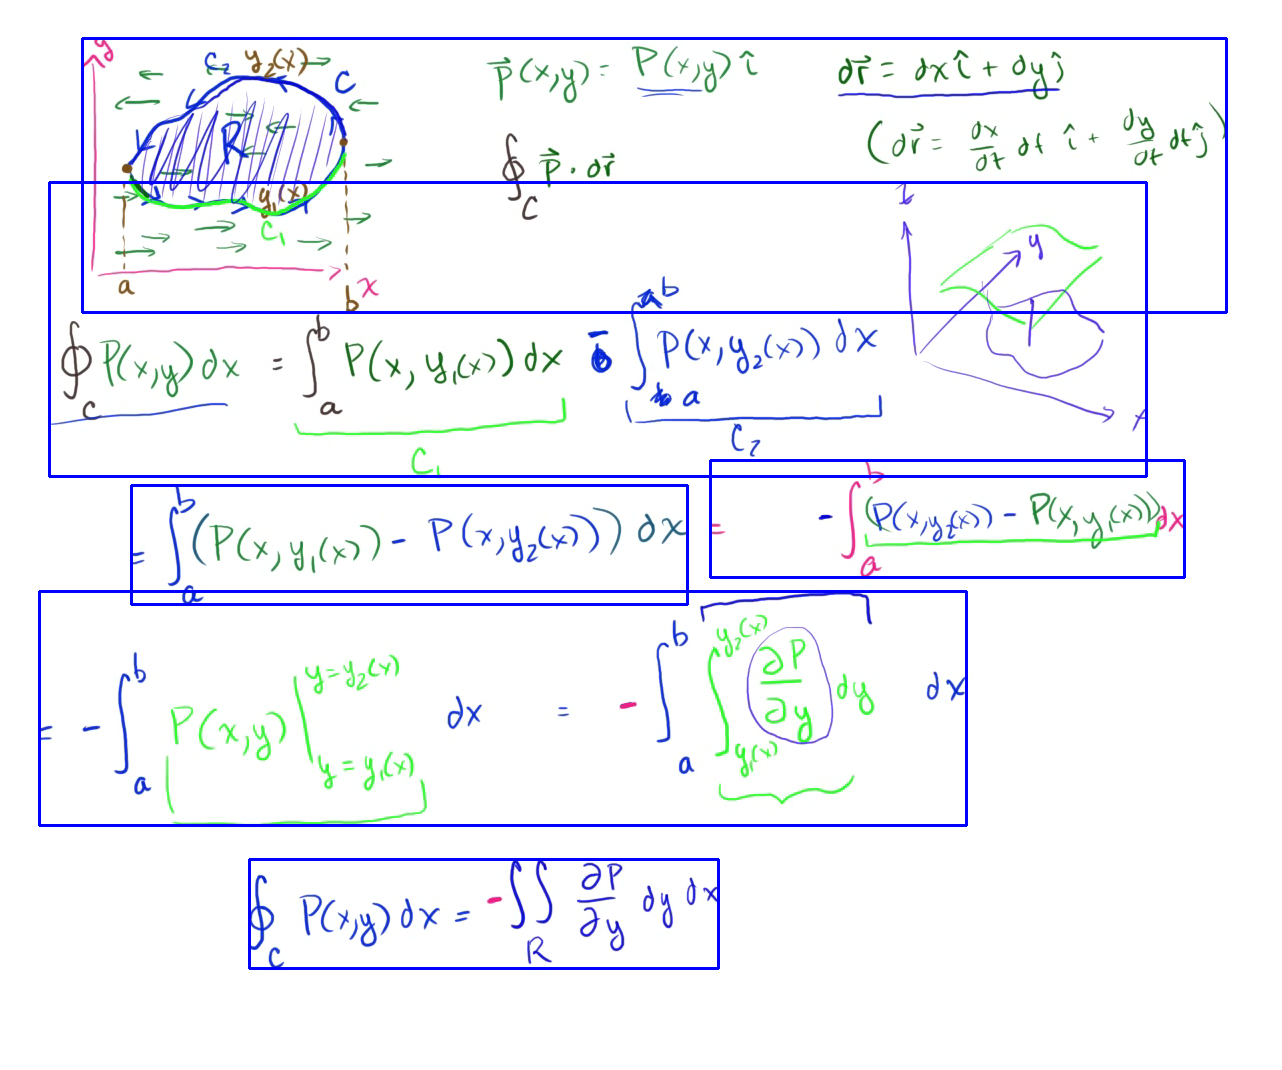 y
C₂ y₂(x)
C
R
y₁(x)
C₁
a
b x
P⃗(x,y) = P(x,y) î
dr⃗ = dx î + dy ĵ
(dr⃗ = dx/dt dt î + dy/dt dt ĵ)
∮_C P⃗ · dr⃗
z
y
x
∮_C P(x,y) dx = ∫_a^b P(x, y₁(x)) dx - ∫_a^b P(x, y₂(x)) dx
C₁
C₂
= ∫_a^b (P(x, y₁(x)) - P(x, y₂(x))) dx
= - ∫_a^b (P(x, y₂(x)) - P(x, y₁(x))) dx
= - ∫_a^b P(x,y) |_{y = y₁(x)}^{y = y₂(x)} dx = - ∫_a^b ∫_{y₁(x)}^{y₂(x)} ∂P/∂y dy dx
∮_C P(x,y) dx = - ∬_R ∂P/∂y dy dx